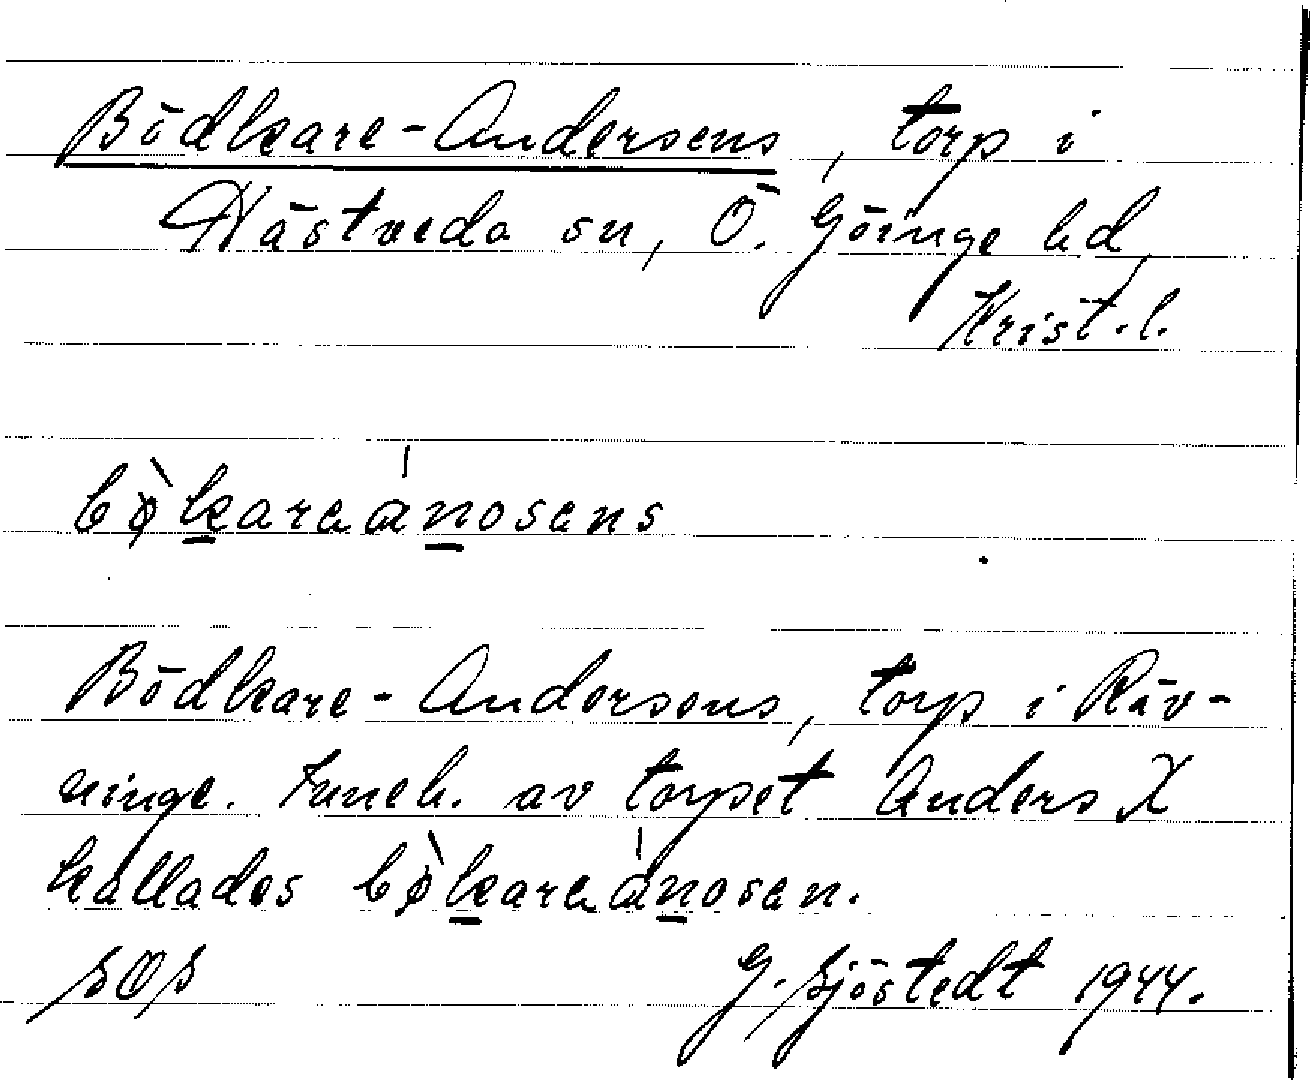 Bödkare-Andersens, torp i
Hästveda sn, Ö. Göinge hd,
Krist. l.
Bödkare-Andersens, torp i Räv-
ninge. Inneh. av torpet Anders X
kallades
SOS G. Sjöstedt 1944.